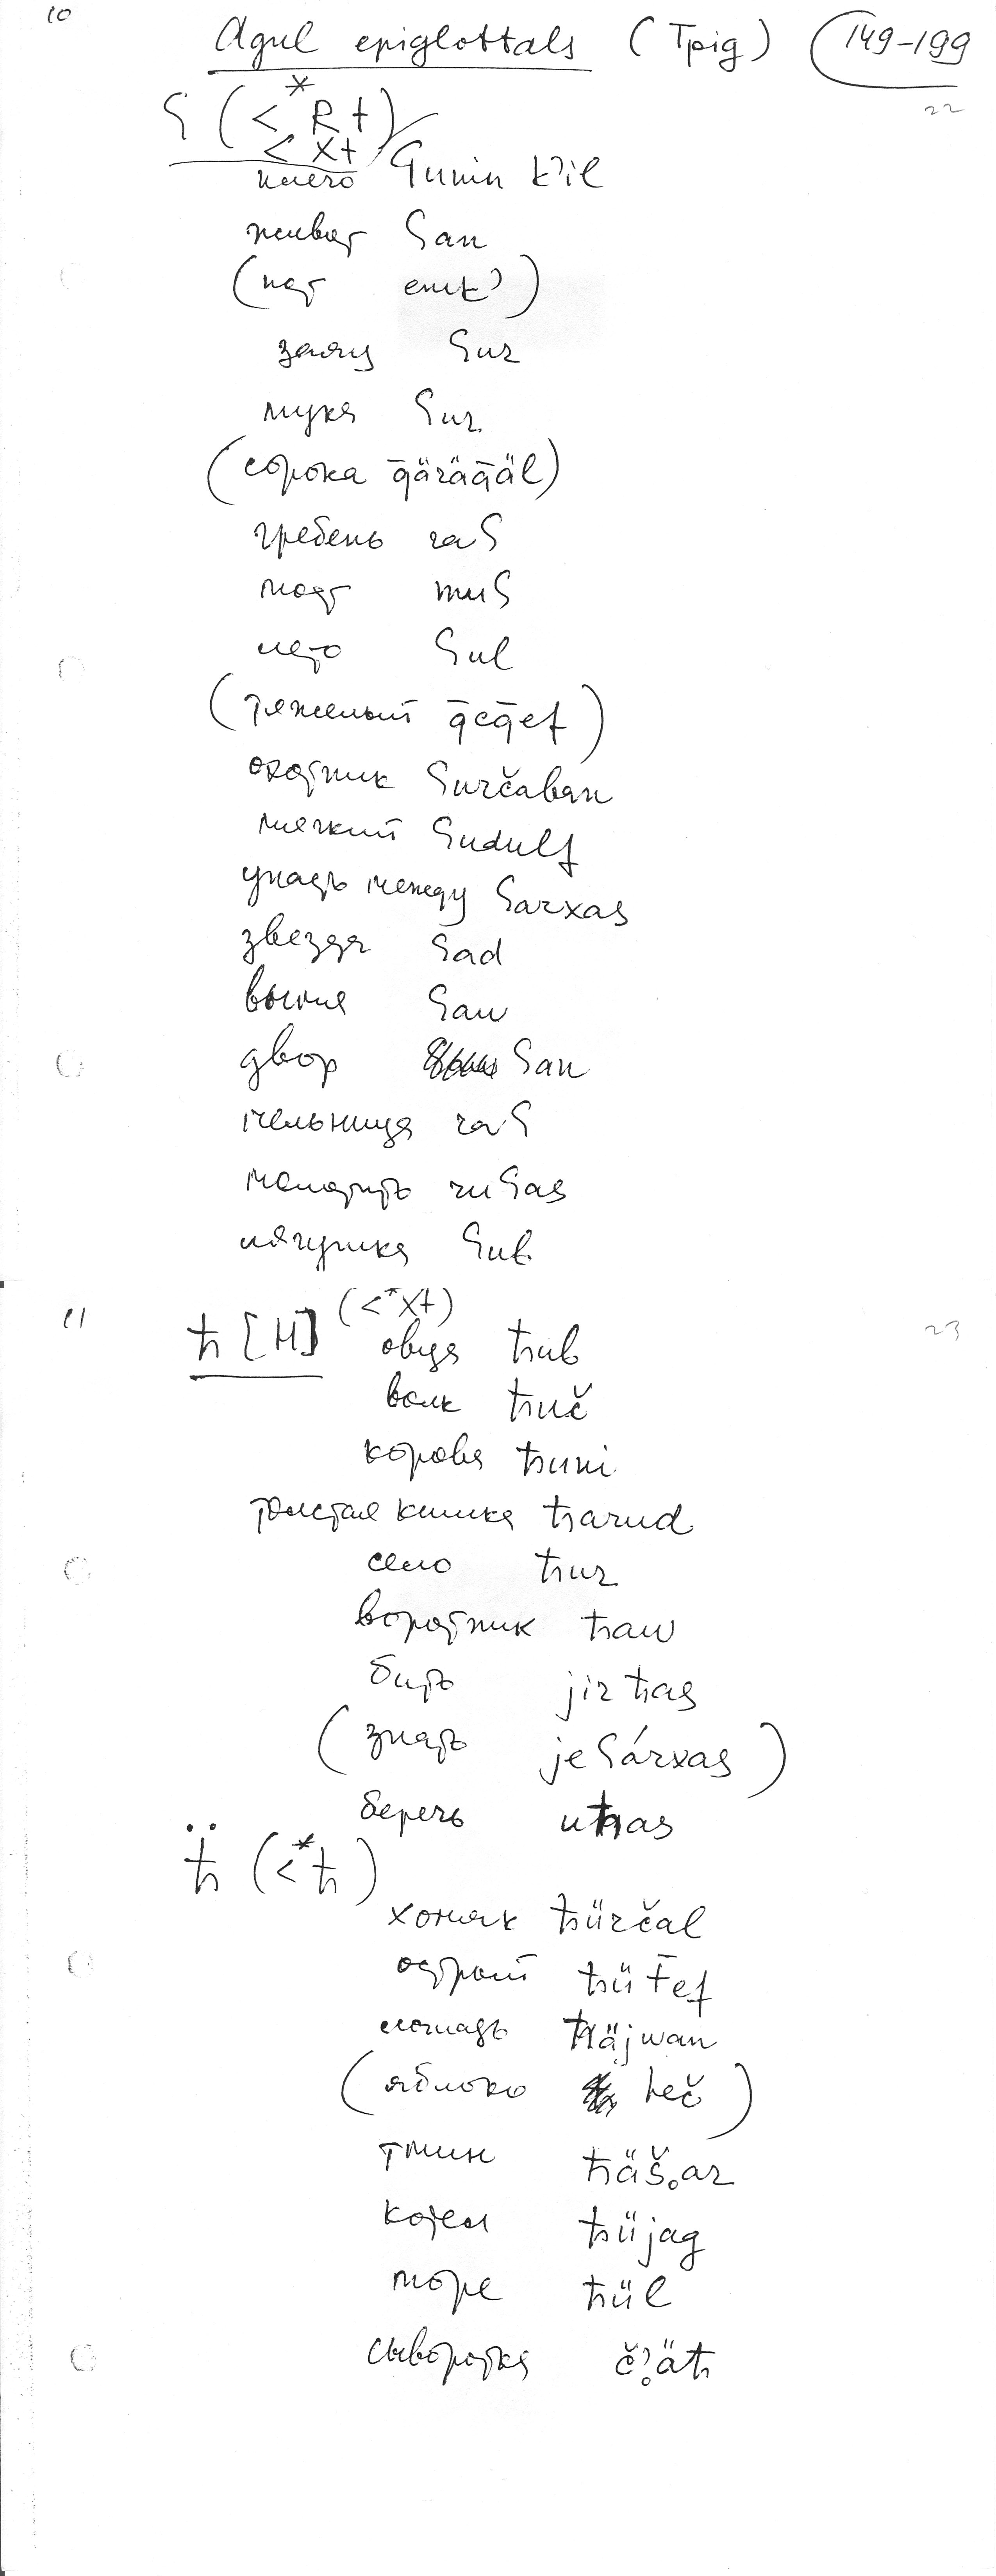 10
Agul epiglottals (Tpig) (149-199
22
ʕ (< *R+)
< X+
плечо ʕunin k'il
живот ʕan
заяц ʕur
мука ʕur
(сорока q̄äräq̄äl)
гребень raʕ
мозг
лето ʕul
(тяжелый q̄eq̄ef)
охотник ʕurčaban
мягкий ʕudulf
упасть между ʕarxas
звезда ʕad
ʕaw
двор ʕan
мельница raʕ
молотить ruʕas
лягушка ʕub
11
ћ [H] (<*X+)
23
овца ћub
волк ћuč
корова ћuni
толстая кишка ћarud
село ћur
воротник ћaw
бить jirћas
(знать jeʕárxas)
беречь uћas
ћ̈ (<*ћ)
хомяк ћürčal
острый ћüt̄ef
лошадь ћäjwan
(яблоко heč)
тмин ћäš.ar
котел ћüjag
море ћül
сыворотка č̣ʾäћ